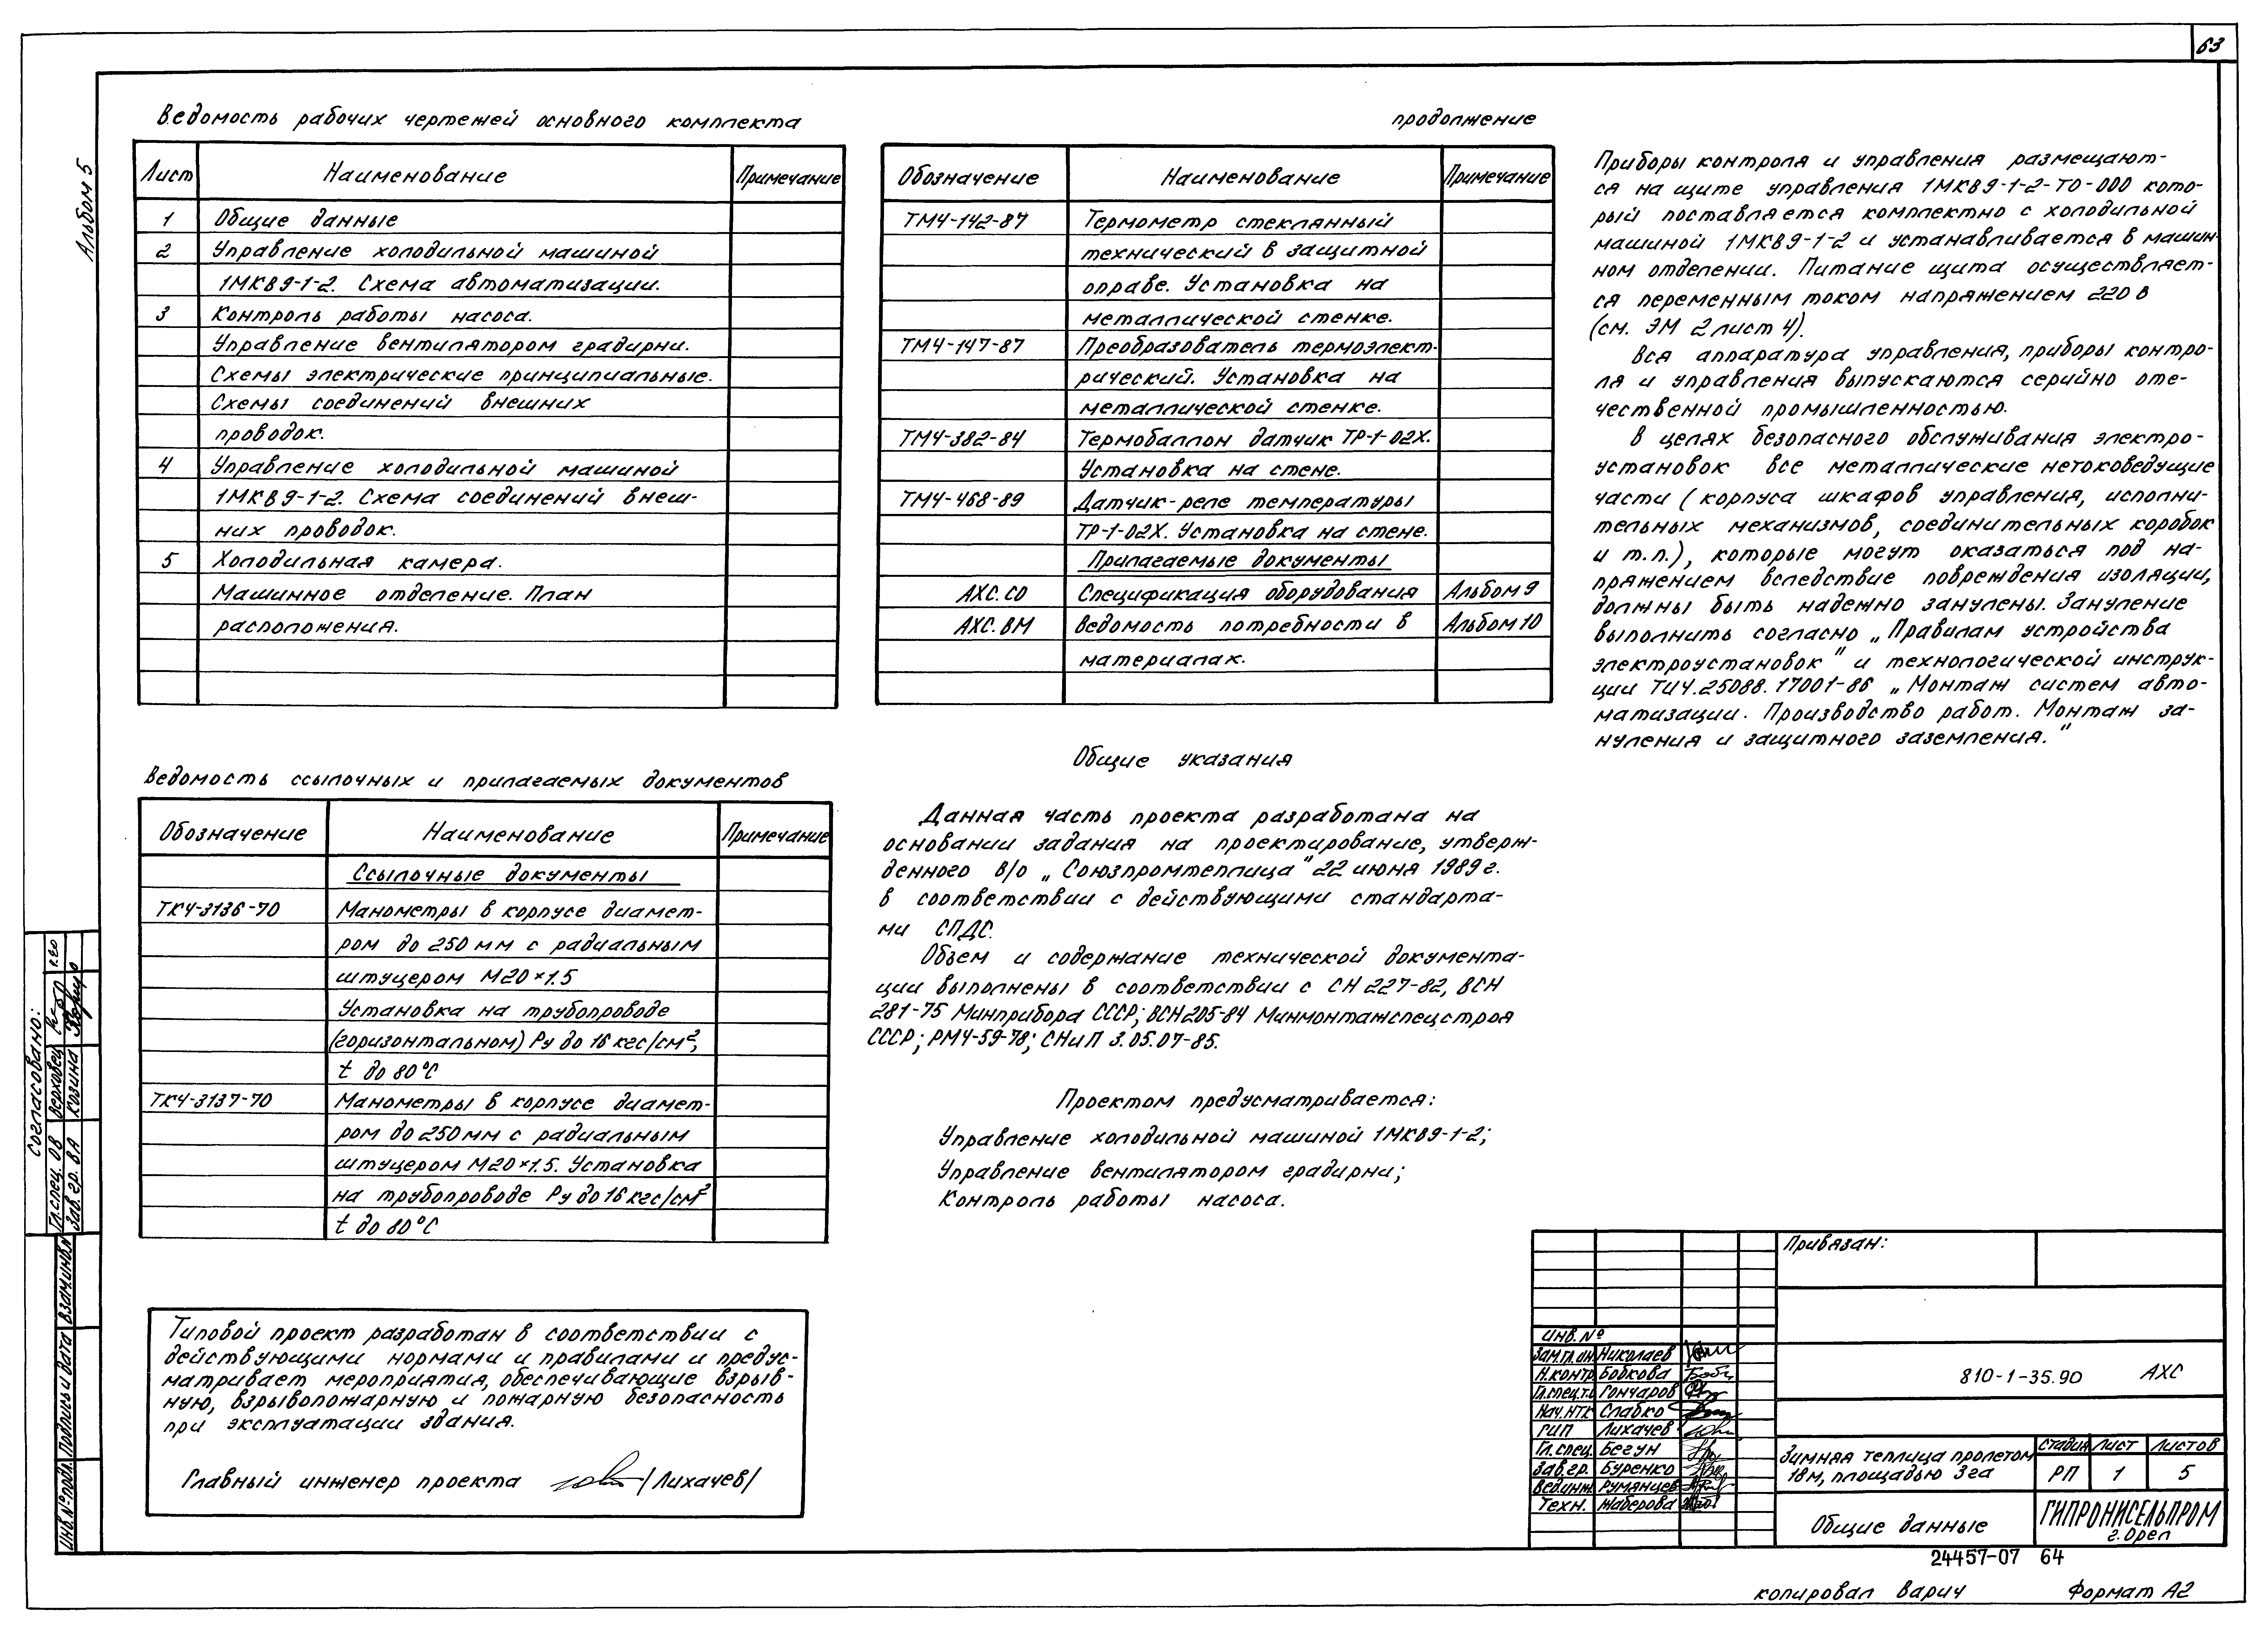 63
Альбом 5
Ведомость рабочих чертежей основного комплекта
Лист Наименование Примечание
1 Общие данные
2 Управление холодильной машиной
1МКВ9-1-2. Схема автоматизации.
3 Контроль работы насоса.
Управление вентилятором градирни.
Схемы электрические принципиальные.
Схемы соединений внешних
проводок.
4 Управление холодильной машиной
1МКВ9-1-2. Схема соединений внеш-
них проводок.
5 Холодильная камера.
Машинное отделение. План
расположения.
Ведомость ссылочных и прилагаемых документов
Обозначение Наименование Примечание
Ссылочные документы
ТК4-3136-70 Манометры в корпусе диамет-
ром до 250 мм с радиальным
штуцером М20×1.5
Установка на трубопроводе
(горизонтальном) Ру до 16 кгс/см²,
t до 80°С
ТК4-3137-70 Манометры в корпусе диамет-
ром до 250 мм с радиальным
штуцером М20×1.5. Установка
на трубопроводе Ру до 16 кгс/см²
t до 80°С
Типовой проект разработан в соответствии с
действующими нормами и правилами и предус-
матривает мероприятия, обеспечивающие взрыв-
ную, взрывопожарную и пожарную безопасность
при эксплуатации здания.
Главный инженер проекта /Лихачев/
продолжение
Обозначение Наименование Примечание
ТМ4-142-87 Термометр стеклянный
технический в защитной
оправе. Установка на
металлической стенке.
ТМ4-147-87 Преобразователь термоэлект-
рический. Установка на
металлической стенке.
ТМ4-382-84 Термобаллон датчик ТР-1-02Х.
Установка на стене.
ТМ4-468-89 Датчик-реле температуры
ТР-1-02Х. Установка на стене.
Прилагаемые документы
АХС.СО Спецификация оборудования Альбом 9
АХС.ВМ Ведомость потребности в Альбом 10
материалах.
Общие указания
Данная часть проекта разработана на
основании задания на проектирование, утверж-
денного в/о „Союзпромтеплица" 22 июня 1989 г.
в соответствии с действующими стандарта-
ми СПДС.
Объем и содержание технической документа-
ции выполнены в соответствии с СН 227-82, ВСН
281-75 Минприбора СССР; ВСН205-84 Минмонтажспецстроя
СССР; РМ4-59-78; СНиП 3.05.07-85.
Проектом предусматривается:
Управление холодильной машиной 1МКВ9-1-2;
Управление вентилятором градирни;
Контроль работы насоса.
Приборы контроля и управления размещают-
ся на щите управления 1МКВ9-1-2-ТО-000 кото-
рый поставляется комплектно с холодильной
машиной 1МКВ9-1-2 и устанавливается в машин-
ном отделении. Питание щита осуществляет-
ся переменным током напряжением 220 в
(см. ЭМ 2 лист 4).
Вся аппаратура управления, приборы контро-
ля и управления выпускаются серийно оте-
чественной промышленностью.
В целях безопасного обслуживания электро-
установок все металлические нетоковедущие
части (корпуса шкафов управления, исполни-
тельных механизмов, соединительных коробок
и т.п.), которые могут оказаться под на-
пряжением вследствие повреждения изоляции,
должны быть надежно занулены. Зануление
выполнить согласно „Правилам устройства
электроустановок" и технологической инструк-
ции ТИ4.25088.17001-86 „Монтаж систем авто-
матизации. Производство работ. Монтаж за-
нуления и защитного заземления."
Согласовано:
Гл.спец. ОВ Верховец
Зав. гр. ВА Козина
Инв.№подл. Подпись и дата Взам.инв.№
Привязан:
Инв.№
Зам.гл.ин. Николаев
Н.контр. Бобкова
Гл.спец.т.о. Гончаров
Нач.НТК Слабко
ГИП Лихачев
Гл.спец. Бегун
Зав.гр. Буренко
Вед.инж. Румянцев
Техн. Жаберова
810-1-35.90 АХС
Зимняя теплица пролетом
18м, площадью 3га
Стадия Лист Листов
РП 1 5
Общие данные
ГИПРОНИСЕЛЬПРОМ
г.Орел
24457-07 64
копировал Варич Формат А2